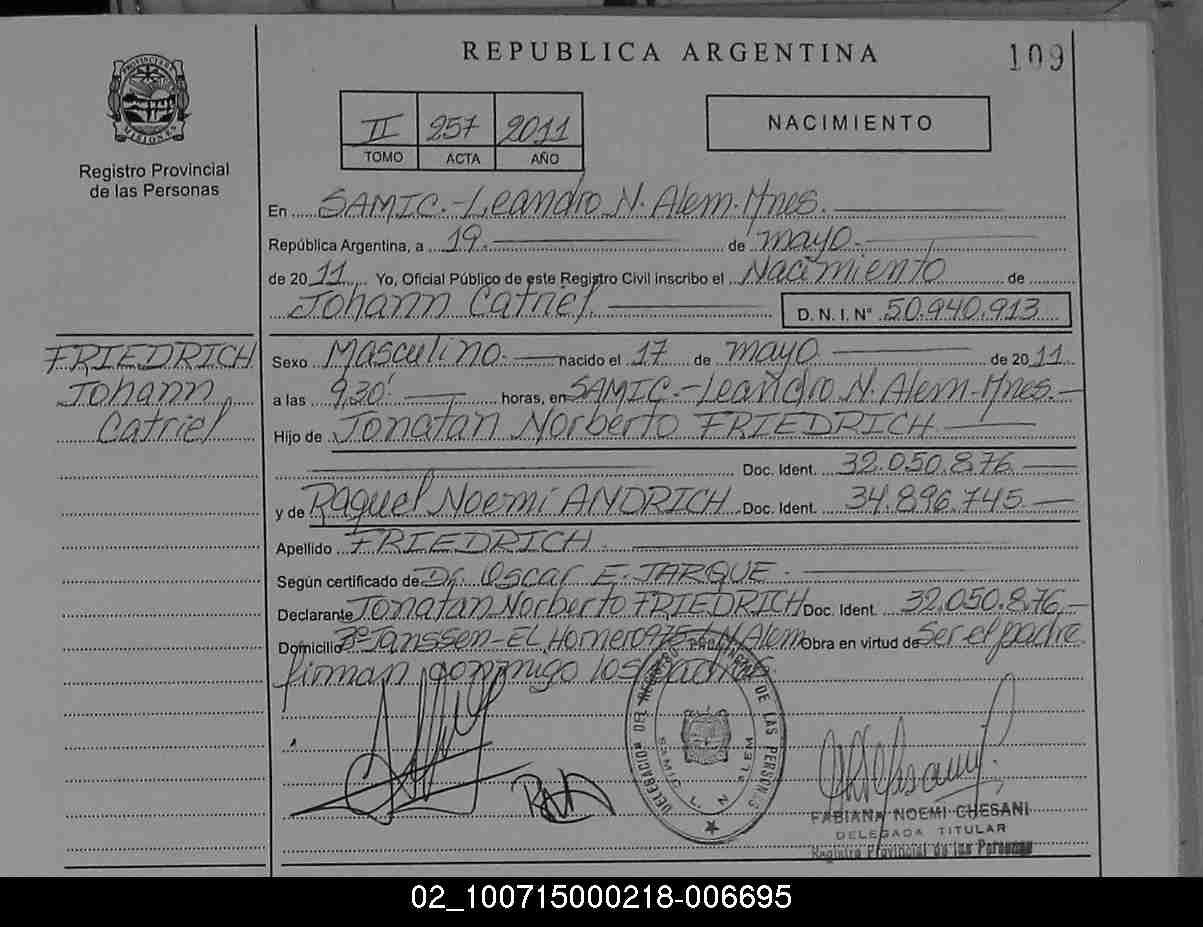 REPUBLICA ARGENTINA
109
PROVINCIA DE MISIONES
Registro Provincial
de las Personas
II 257 2011
TOMO ACTA AÑO
NACIMIENTO
En SAMIC.-Leandro N. Alem-Mnes.
República Argentina, a 19. de mayo.
de 2011 Yo, Oficial Público de este Registro Civil inscribo el Nacimiento de
Johann Catriel. D. N. I. Nº 50.940.913
FRIEDRICH
Johann
Catriel
Sexo Masculino. nacido el 17 de mayo de 2011.
a las 9,30' horas, en SAMIC.-Leandro N. Alem-Mnes.-
Hijo de Jonatan Norberto FRIEDRICH
Doc. Ident. 32.050.876
y de Raquel Noemi ANDRICH Doc. Ident. 34.896.745.
Apellido FRIEDRICH.
Según certificado de Dr. Oscar E. JARQUE.
Declarante Jonatan Norberto FRIEDRICH Doc. Ident. 32.050.876,-
Domicilio Bº Janssen-EL Hornero 975-L.N.Alem Obra en virtud de ser el padre
firman conmigo los padres
DELEGACION DEL REGISTRO PROVINCIAL DE LAS PERSONAS
SAMIC L. N ALEM
FABIANA NOEMI CHESANI
DELEGADA TITULAR
Registro Provincial de las Personas
02_100715000218-006695